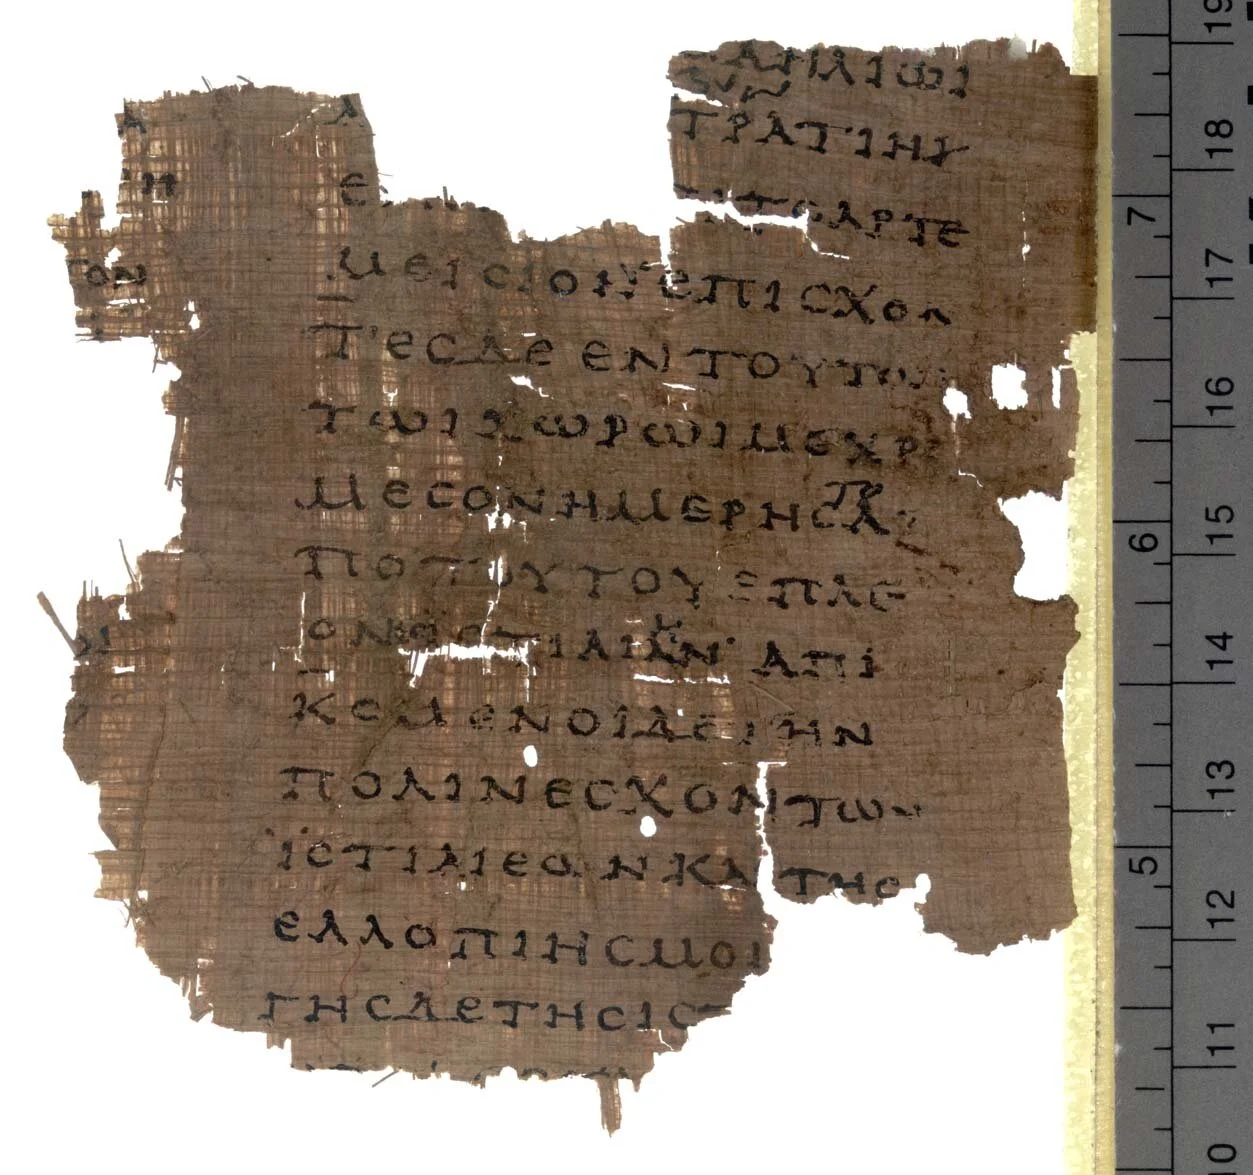 ΑΗΛΙωΙ
ΤΡΑΤΙΗ
Ε ΤΟΑΡΤΕ
ΓΟΝ ΜΕΙϹΙΟΝ ΕΠΙϹΧΟΝ
ΤΕϹΔΕ ΕΝ ΤΟΥΤωι
ΤωΙ ΧωΡωΙ ΜΕΧΡΙ
ΜΕϹΟΝ ΗΜΕΡΗϹ ΤΟ Α
ΠΟ ΤΟΥΤΟΥ ΕΠΛΕ
ΟΝ ΕϹ ΙϹΤΙΑΙΗΝ ΑΠΙ
ΚΟΜΕΝΟΙ ΔΕ ΤΗΝ
ΠΟΛΙΝ ΕϹΧΟΝ ΤωΝ
ΪϹΤΙΑΙΕωΝ ΚΑΙ ΤΗϹ
ΕΛΛΟΠΙΗϹ ΜΟΙ
ΓΗϹ ΔΕ ΤΗϹ ΙϹΤ